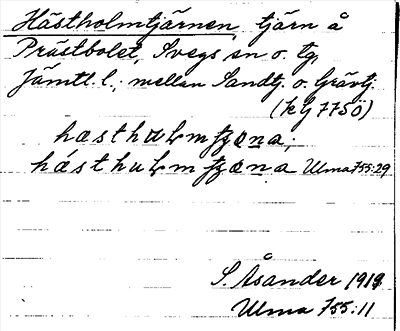 Hästholmtjärnen, tjärn å
Prästbolet, Svegs sn o. tg,
Jämtl. l.; mellan Sandtj. o. Grävtj.
(kG 775ö)
hæsthuɫmtjæna;
hásthuɫmtjæna Ulma 755:29
S. Åsander 1918
Ulma 755:11